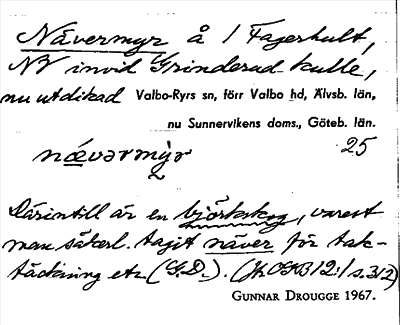 Nävermyr å 1 Fagerhult,
NV invid Grinderud kulle,
nu utdikad Valbo-Ryrs sn, förr Valbo hd, Älvsb. län,
nu Sunnervikens doms., Göteb. län.
nævərmỳr 25
Därintill är en björkskog, varest
man säkerl. tagit näver för tak-
täckning etc (G.D.). (Jfr OGB 12:1 s. 312)
GUNNAR DROUGGE 1967.